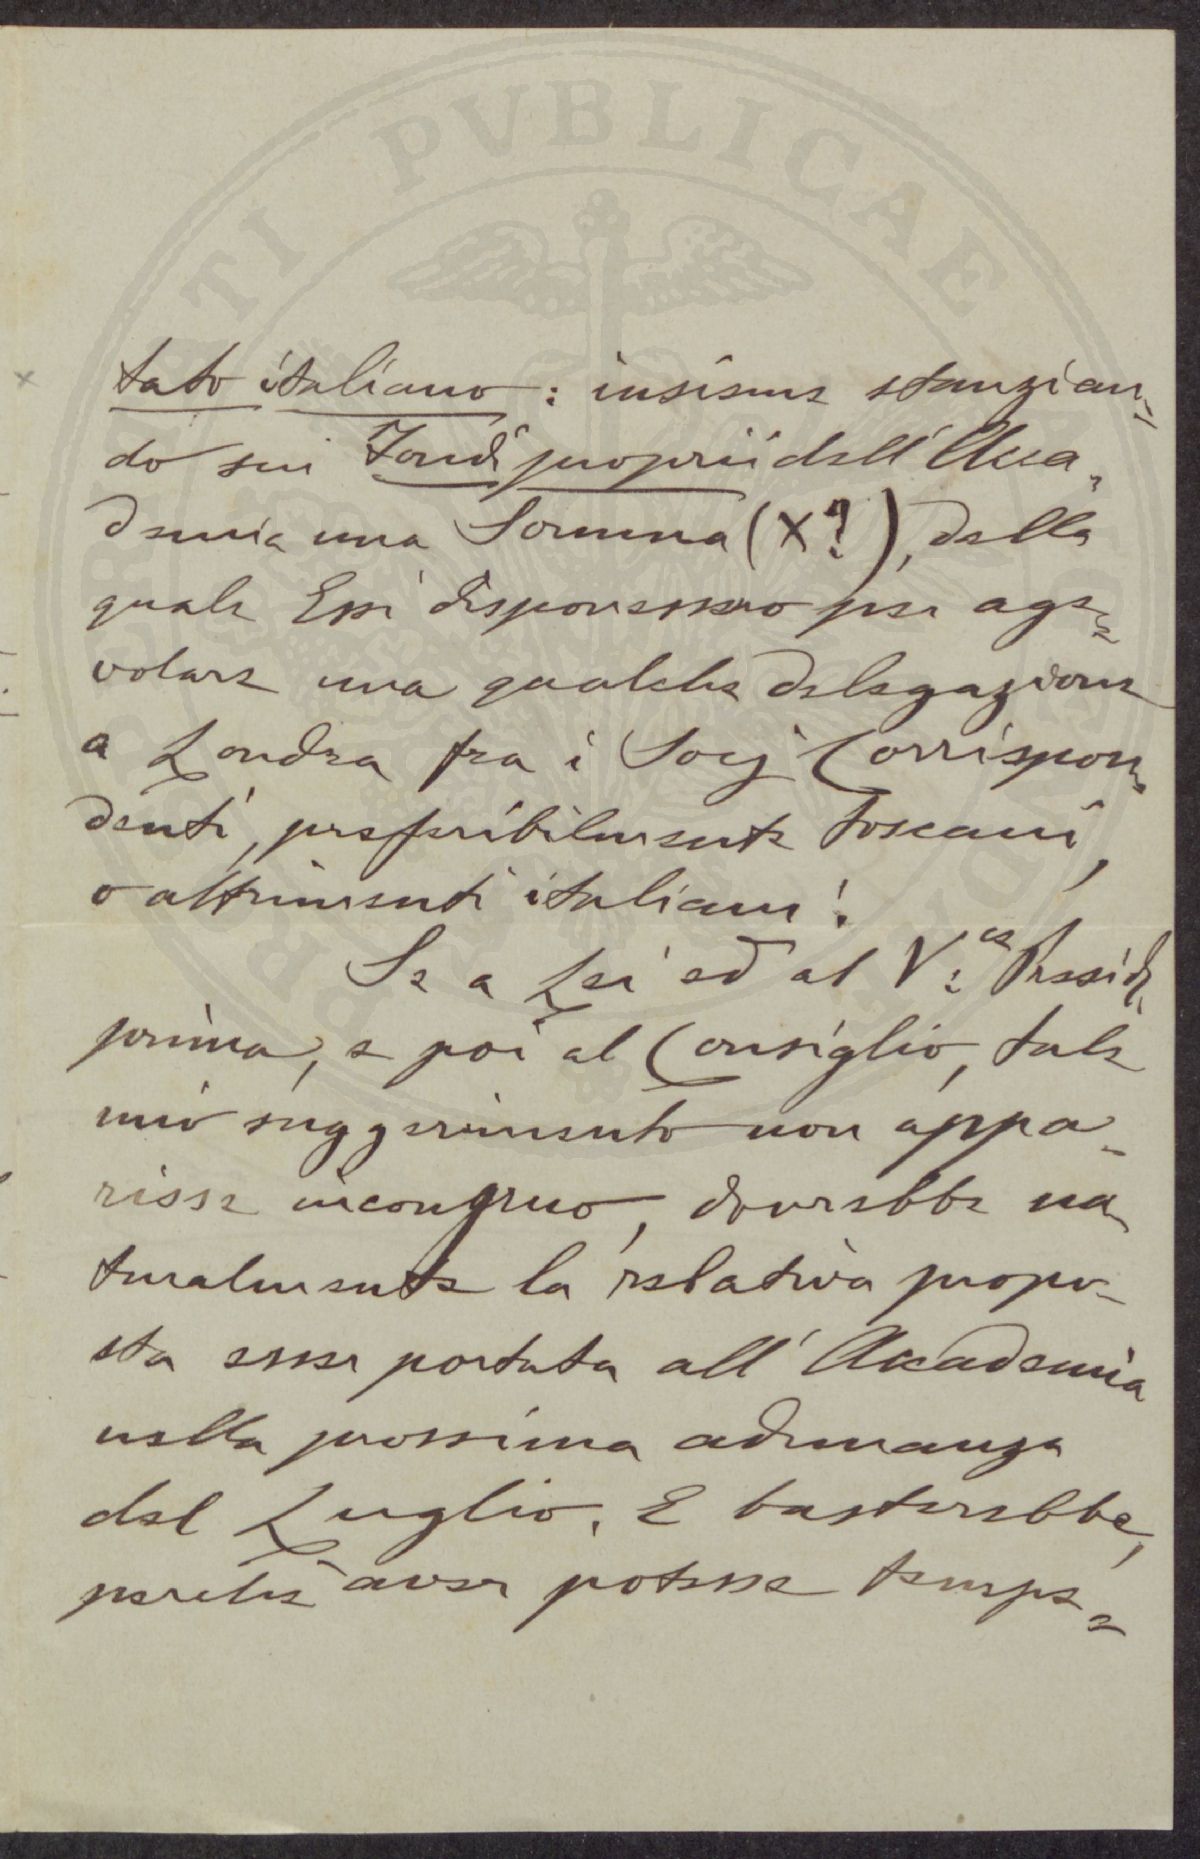 PUBLICAE
tato italiano: insieme stanzian=
do sui Fondi proprii dell'Acca=
demia una Somma (X?), della
quale Essi disponessero per age=
volare una qualche delegazione
a Londra fra i Socj Corrispon=
denti, preferibilmente toscani,
o altrimenti italiani!
Se a Lei ed al V:ce Presid:
prima, e poi al Consiglio, tale
mio suggerimento non appa=
risse incongruo, dovrebbe na=
turalmente la relativa propo=
sta esser portata all'Accademia
nella prossima adunanza
del Luglio. E basterebbe,
perchè aver potesse tempe=